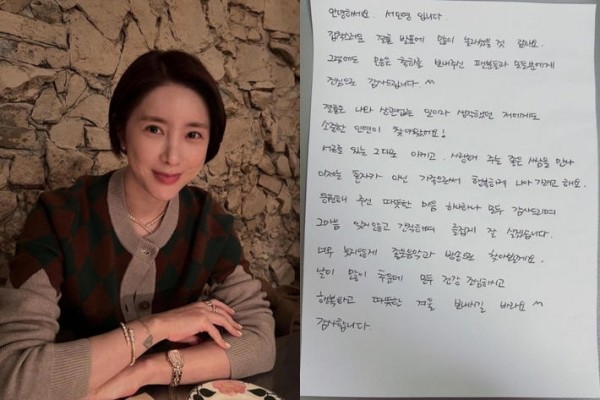 안녕하세요. 서인영 입니다.
갑작스러운 결혼 발표에 많이 놀라셨을 것 같아요.
그럼에도 많은 축하를 보내주신 팬분들과 모든분에게
진심으로 감사드립니다 ^^
결혼은 나랑 상관없는 일이라 생각했던 저에게도
소중한 인연이 찾아왔어요!
서로를 있는 그대로 아끼고. 사랑해 주는 좋은 사람을 만나
이제는 혼자가 아닌 가정으로써 행복하게 나아가려고 해요.
응원해 주신 따뜻한 마음 하나하나 모두 감사드리며
그마음 잊지않고 간직하며 즐겁게 잘 살겠습니다.
너무 늦지않게 좋은음악과 방송으로 찾아뵐게요.
날이 많이 추운데 모두 건강 조심하시고
행복하고 따뜻한 겨울 보내시길 바라요 ^^
감사합니다